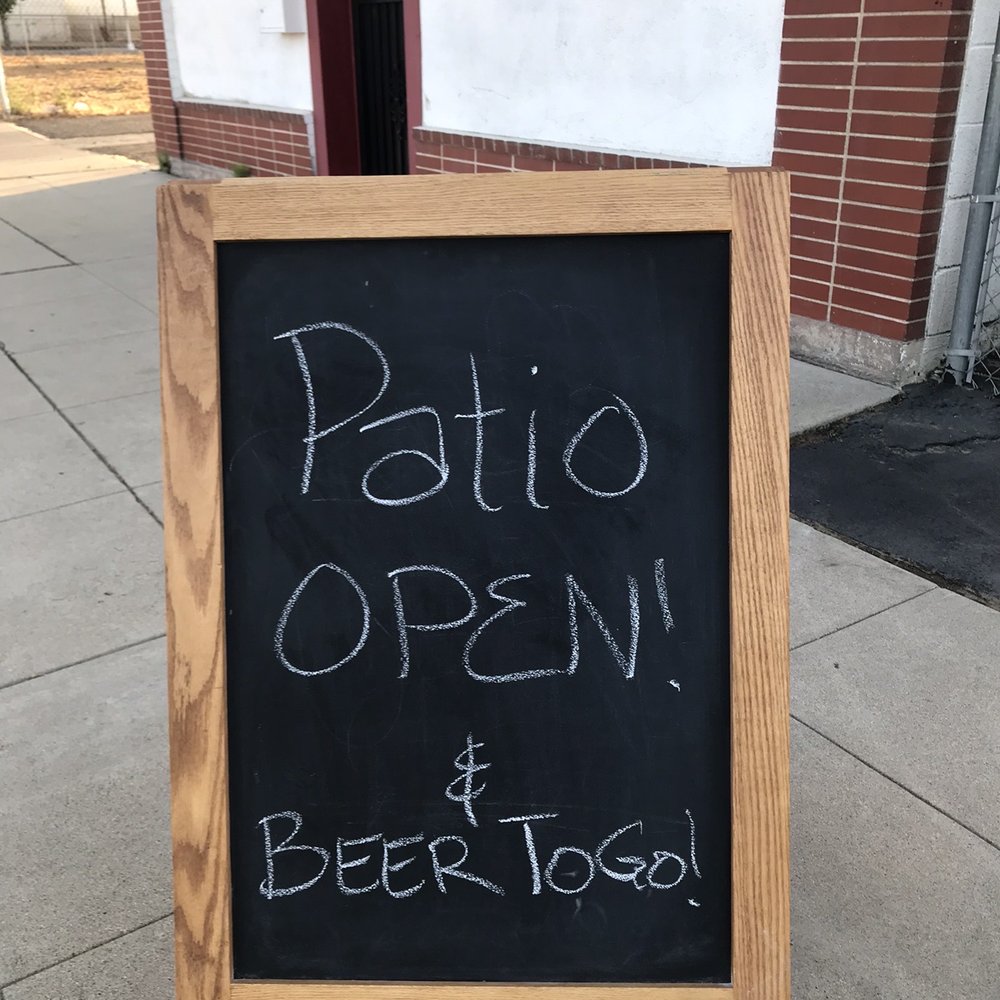 Patio
OPEN!
&
BEER TOGO!